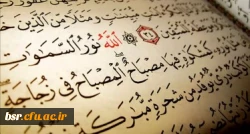 وَمَثَلًا مِّنَ الَّذِينَ
ٱللَّهُ نُورُ السَّمَٰوَٰتِ
فِيهَا مِصْبَاحٌ الْمِصْبَاحُ فِي زُجَاجَةٍ
يُوقَدُ مِن شَجَرَةٍ مُّبَٰرَكَةٍ
bsr.cfu.ac.ir